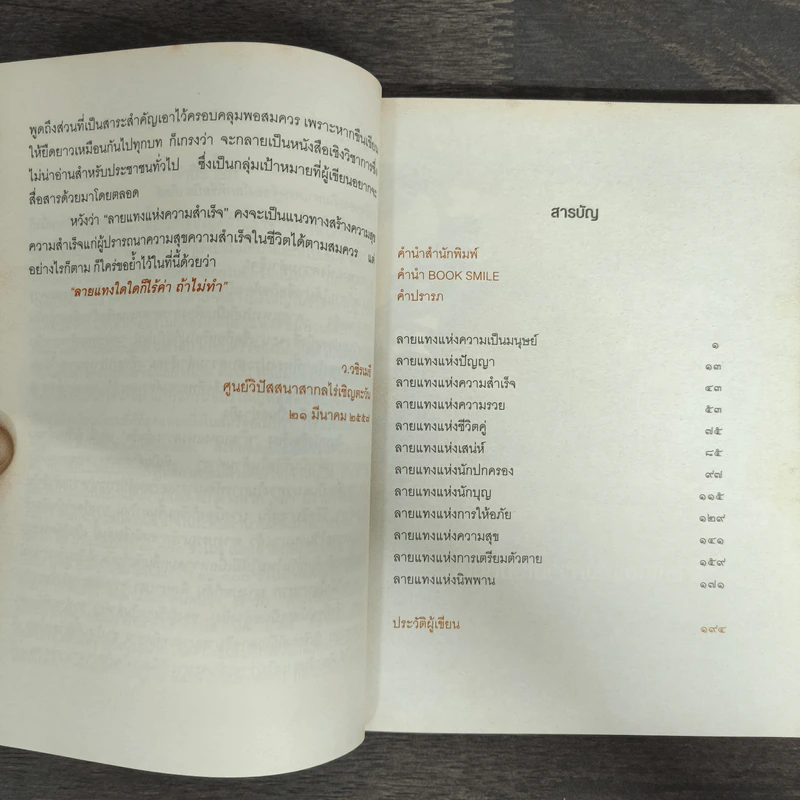 พูดถึงส่วนที่เป็นสาระสำคัญเอาไว้ครอบคลุมพอสมควร เพราะหากขืนเขียน
ให้ยืดยาวเหมือนกันไปทุกบท ก็เกรงว่า จะกลายเป็นหนังสือเชิงวิชาการซึ่ง
ไม่น่าอ่านสำหรับประชาชนทั่วไป ซึ่งเป็นกลุ่มเป้าหมายที่ผู้เขียนอยากจะ
สื่อสารด้วยมาโดยตลอด
หวังว่า "ลายแทงแห่งความสำเร็จ" คงจะเป็นแนวทางสร้างความสุข
ความสำเร็จแก่ผู้ปรารถนาความสุขความสำเร็จในชีวิตได้ตามสมควร แต่
อย่างไรก็ตาม ก็ใคร่ขอย้ำไว้ในที่นี้ด้วยว่า
"ลายแทงใดใดก็ไร้ค่า ถ้าไม่ทำ"
ว.วชิรเมธี
ศูนย์วิปัสสนาสากลไร่เชิญตะวัน
๒๑ มีนาคม ๒๕๕๘
สารบัญ
คำนำสำนักพิมพ์
คำนำ BOOK SMILE
คำปรารภ
ลายแทงแห่งความเป็นมนุษย์ ๑
ลายแทงแห่งปัญญา ๑๓
ลายแทงแห่งความสำเร็จ ๔๓
ลายแทงแห่งความรวย ๕๓
ลายแทงแห่งชีวิตคู่ ๗๕
ลายแทงแห่งเสน่ห์ ๘๕
ลายแทงแห่งนักปกครอง ๙๗
ลายแทงแห่งนักบุญ ๑๑๕
ลายแทงแห่งการให้อภัย ๑๒๙
ลายแทงแห่งความสุข ๑๔๑
ลายแทงแห่งการเตรียมตัวตาย ๑๕๙
ลายแทงแห่งนิพพาน ๑๗๑
ประวัติผู้เขียน ๑๙๔